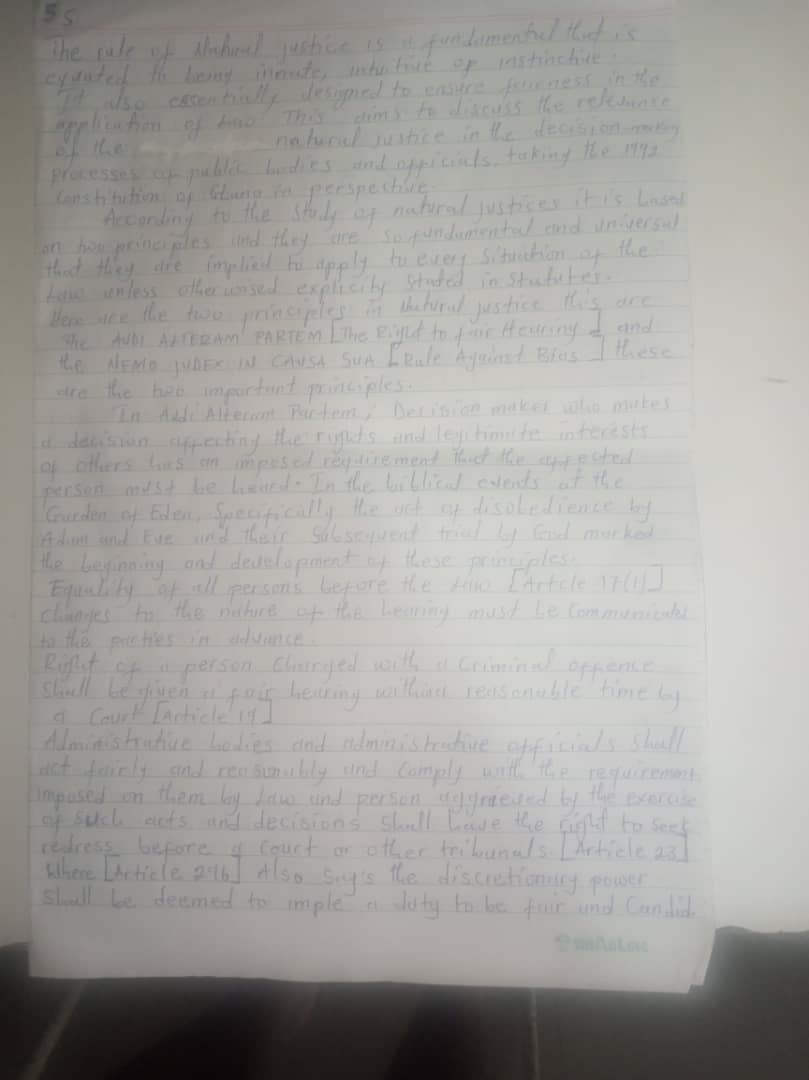 5 S
The rule of Natural justice is a fundamental that is
equated to being innate, intuitive or instinctive.
It also essentially designed to ensure fairness in the
application of law. This aims to discuss the relevance
of the natural justice in the decision-making
processes of public bodies and officials, taking the 1992
Constitution of Ghana in perspective.
According to the study of natural justices it is based
on two principles and they are so fundamental and universal
that they are implied to apply to every situation of the
Law unless other wised explicity stated in statutes.
Here are the two principles in Natural justice this are
The AUDI ALTERAM PARTEM [The Right to fair Hearing] and
the NEMO JUDEX IN CAUSA SUA [Rule Against Bias] these
are the two important principles.
In Audi Alteram Partem, Decision maker who makes
a decision affecting the rights and legitimate interests
of others has an imposed requirement that the affected
person must be heard. In the biblical events at the
Garden of Eden, Specifically the act of disobedience by
Adam and Eve and their Subsequent trial by God marked
the beginning and development of these principles.
Equality of all persons before the law [Article 17(1)]
Changes to the nature of the hearing must be Communicated
to the parties in advance.
Right of a person Charged with a Criminal offence
Shall be given a fair hearing within reasonable time by
a Court [Article 19]
Administrative bodies and administrative officials Shall
act fairly and reasonably and Comply with the requirement
imposed on them by Law and person aggrieved by the exercise
of Such acts and decisions Shall have the right to seek
redress before a Court or other tribunals. [Article 23]
Where [Article 296] Also Say's the discretionary power
Shall be deemed to imple a duty to be fair and Candid.